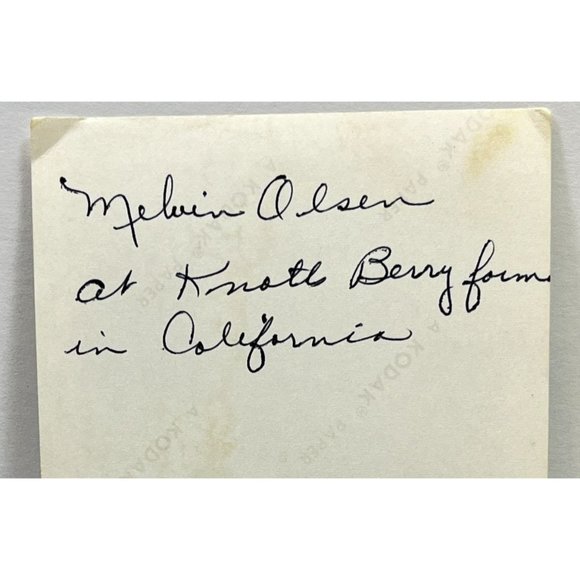 Melvin Olsen
at Knotts Berry farm
in California
A KODAK® PAPER
A KODAK® PAPER
A KODAK® PAPER